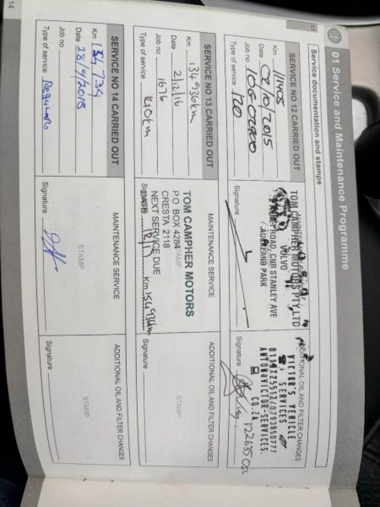 01 Service and Maintenance Programme
Service documentation and stamps
SERVICE NO 12 CARRIED OUT
Km
Date 02/10/2015
Job no
Type of service 120
TOM CAMPHER MOTORS PTY LTD
VOLVO
ROAD, CNR STANLEY AVE
AUCKLAND PARK
Signature
ADDITIONAL OIL AND FILTER CHANGES
VICTOR'S VEHICLE
SERVICES
ANTONVICTOR-SERVICES.
CO.ZA
Signature
SERVICE NO 13 CARRIED OUT
Km 134 936km
Date 2/12/16
Job no 1676
Type of service 140km
MAINTENANCE SERVICE
TOM CAMPHER MOTORS
P.O BOX 4284
CRESTA 2118
NEXT SERVICE DUE
Signature
ADDITIONAL OIL AND FILTER CHANGES
STAMP
Signature
SERVICE NO 14 CARRIED OUT
Km 154 734
Date 28/9/2018
Job no
Type of service
MAINTENANCE SERVICE
STAMP
Signature
ADDITIONAL OIL AND FILTER CHANGES
STAMP
Signature
14